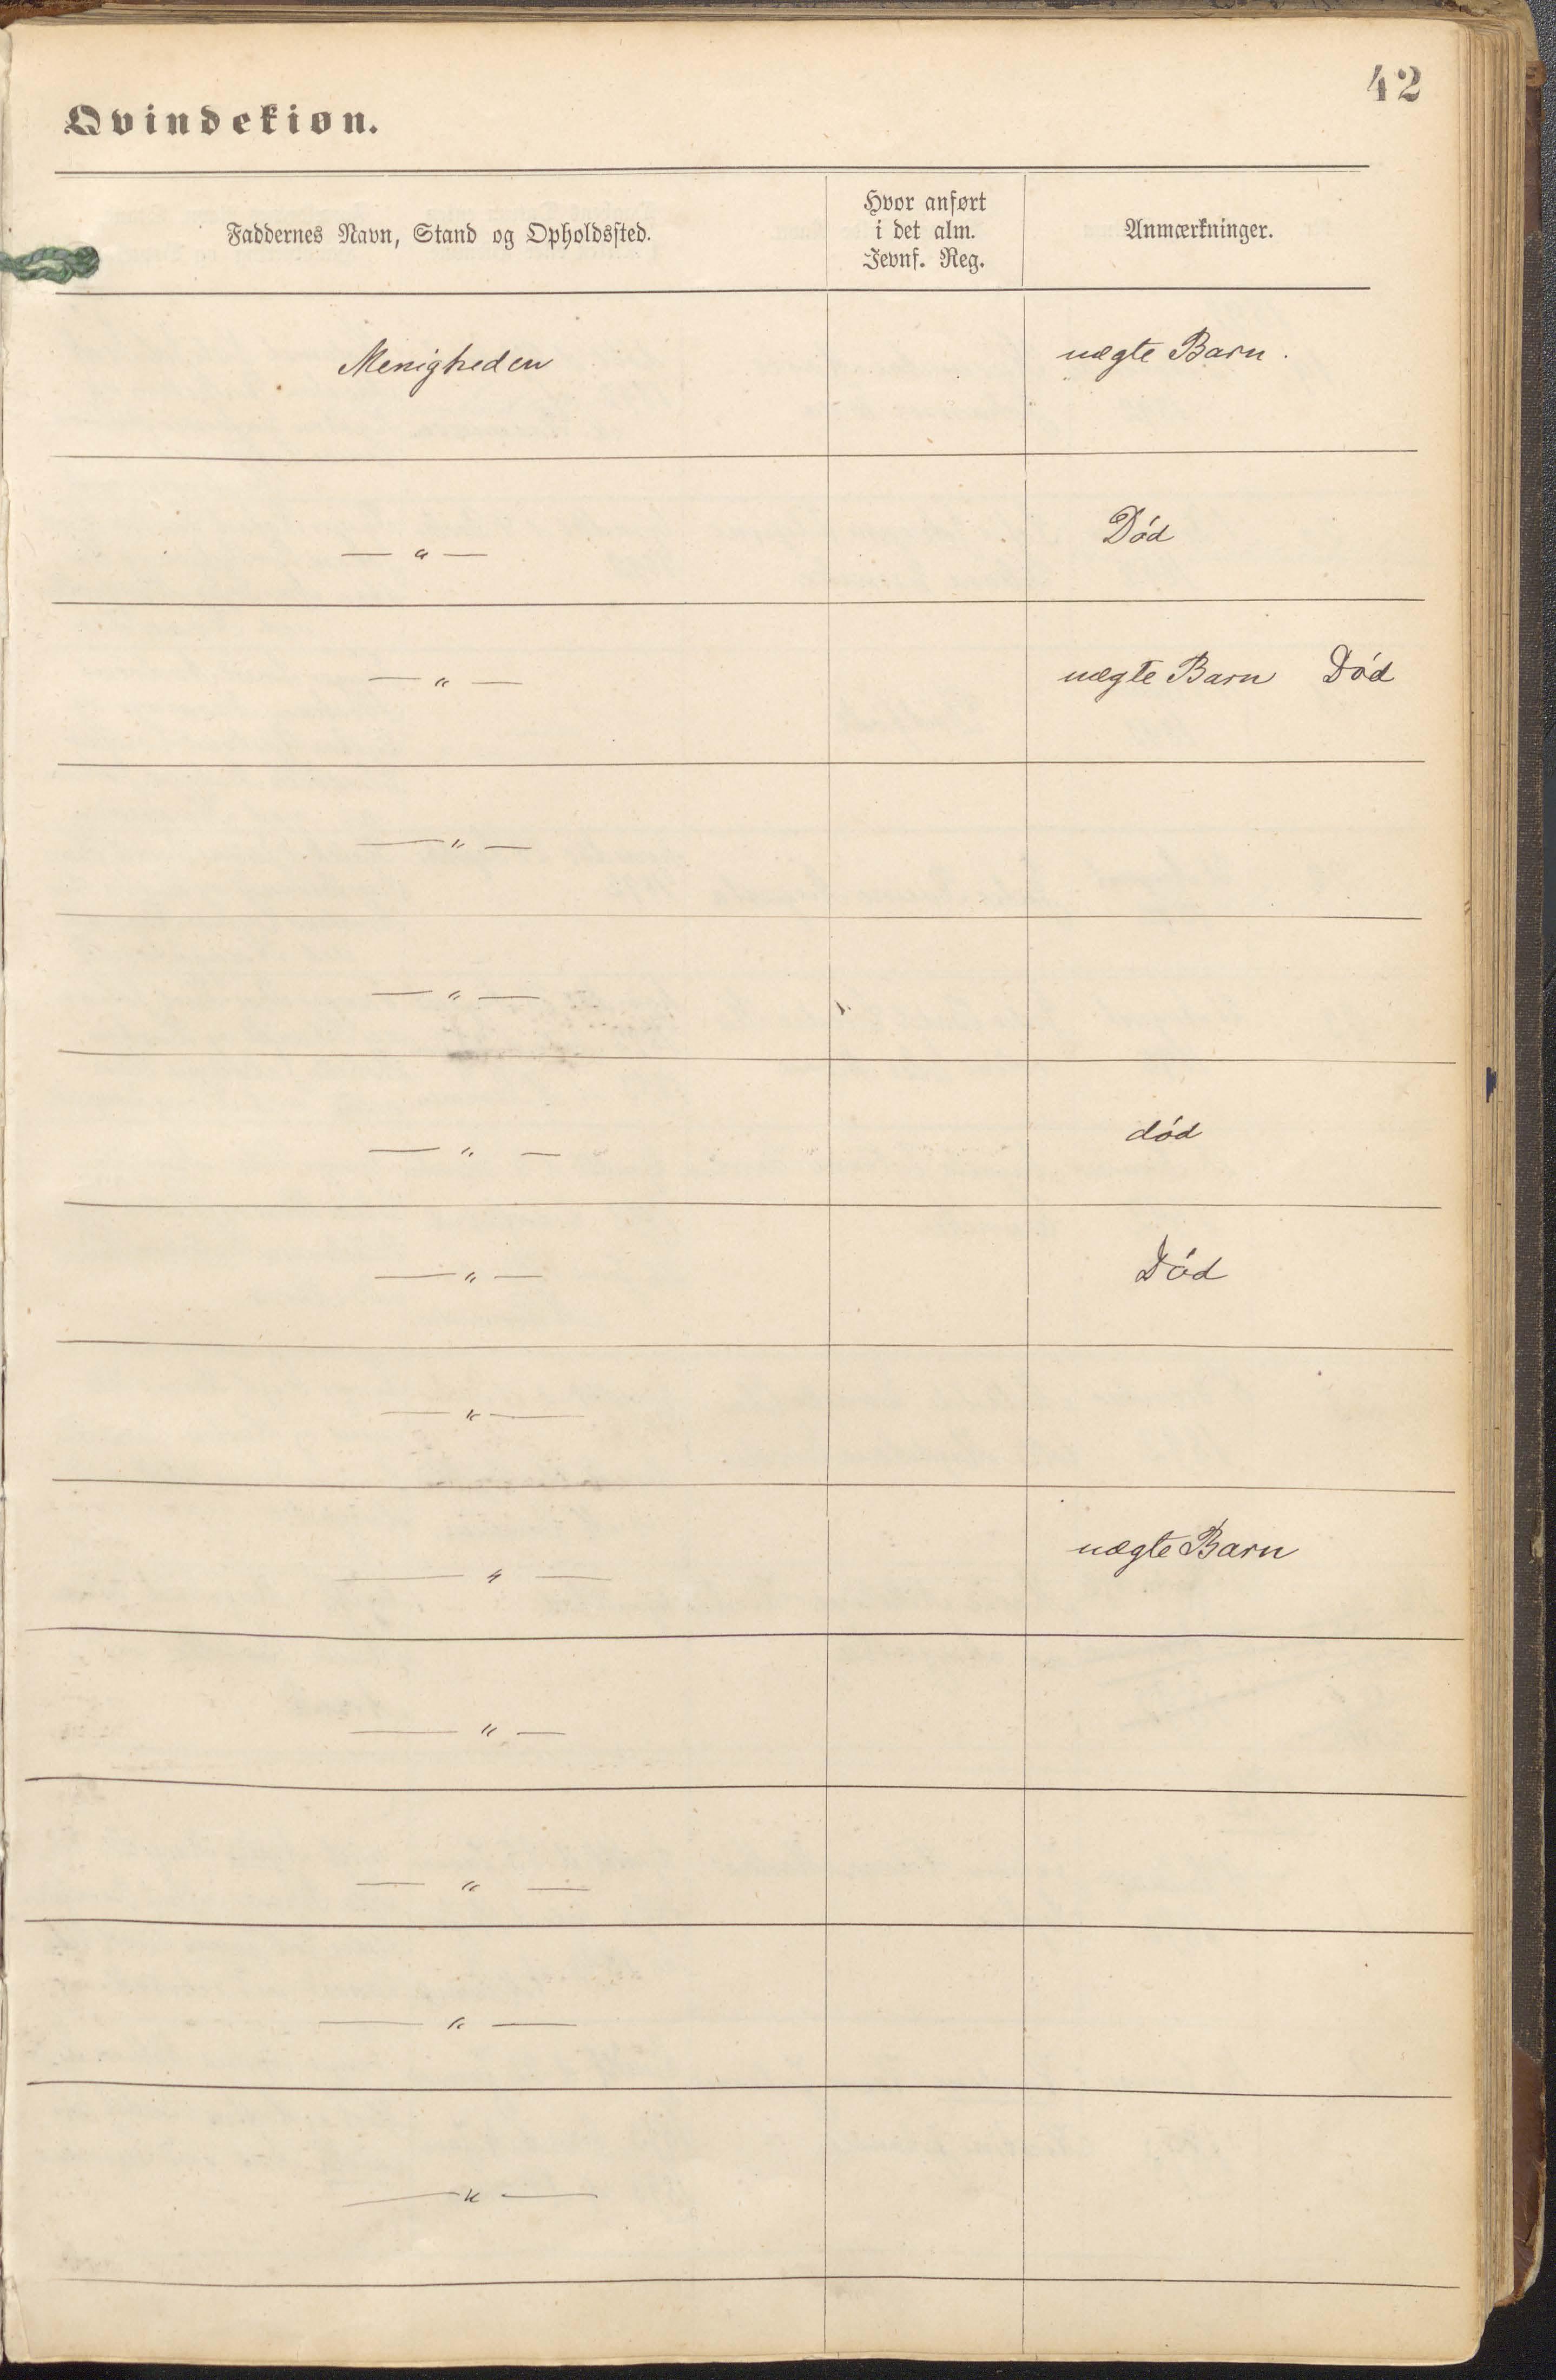 42
Qvindekiøn.
Faddernes Navn, Stand og Opholdssted.
Hvor anført
i det alm.
Jevnf. Reg.
Anmærkninger.
Menigheden uægte Barn.
— " — Död
— " — uægte Barn Död
— " —
— " —
— " — död
— " — Död
— " —
— " — uægte Barn
— " —
— " —
— " —
— " —